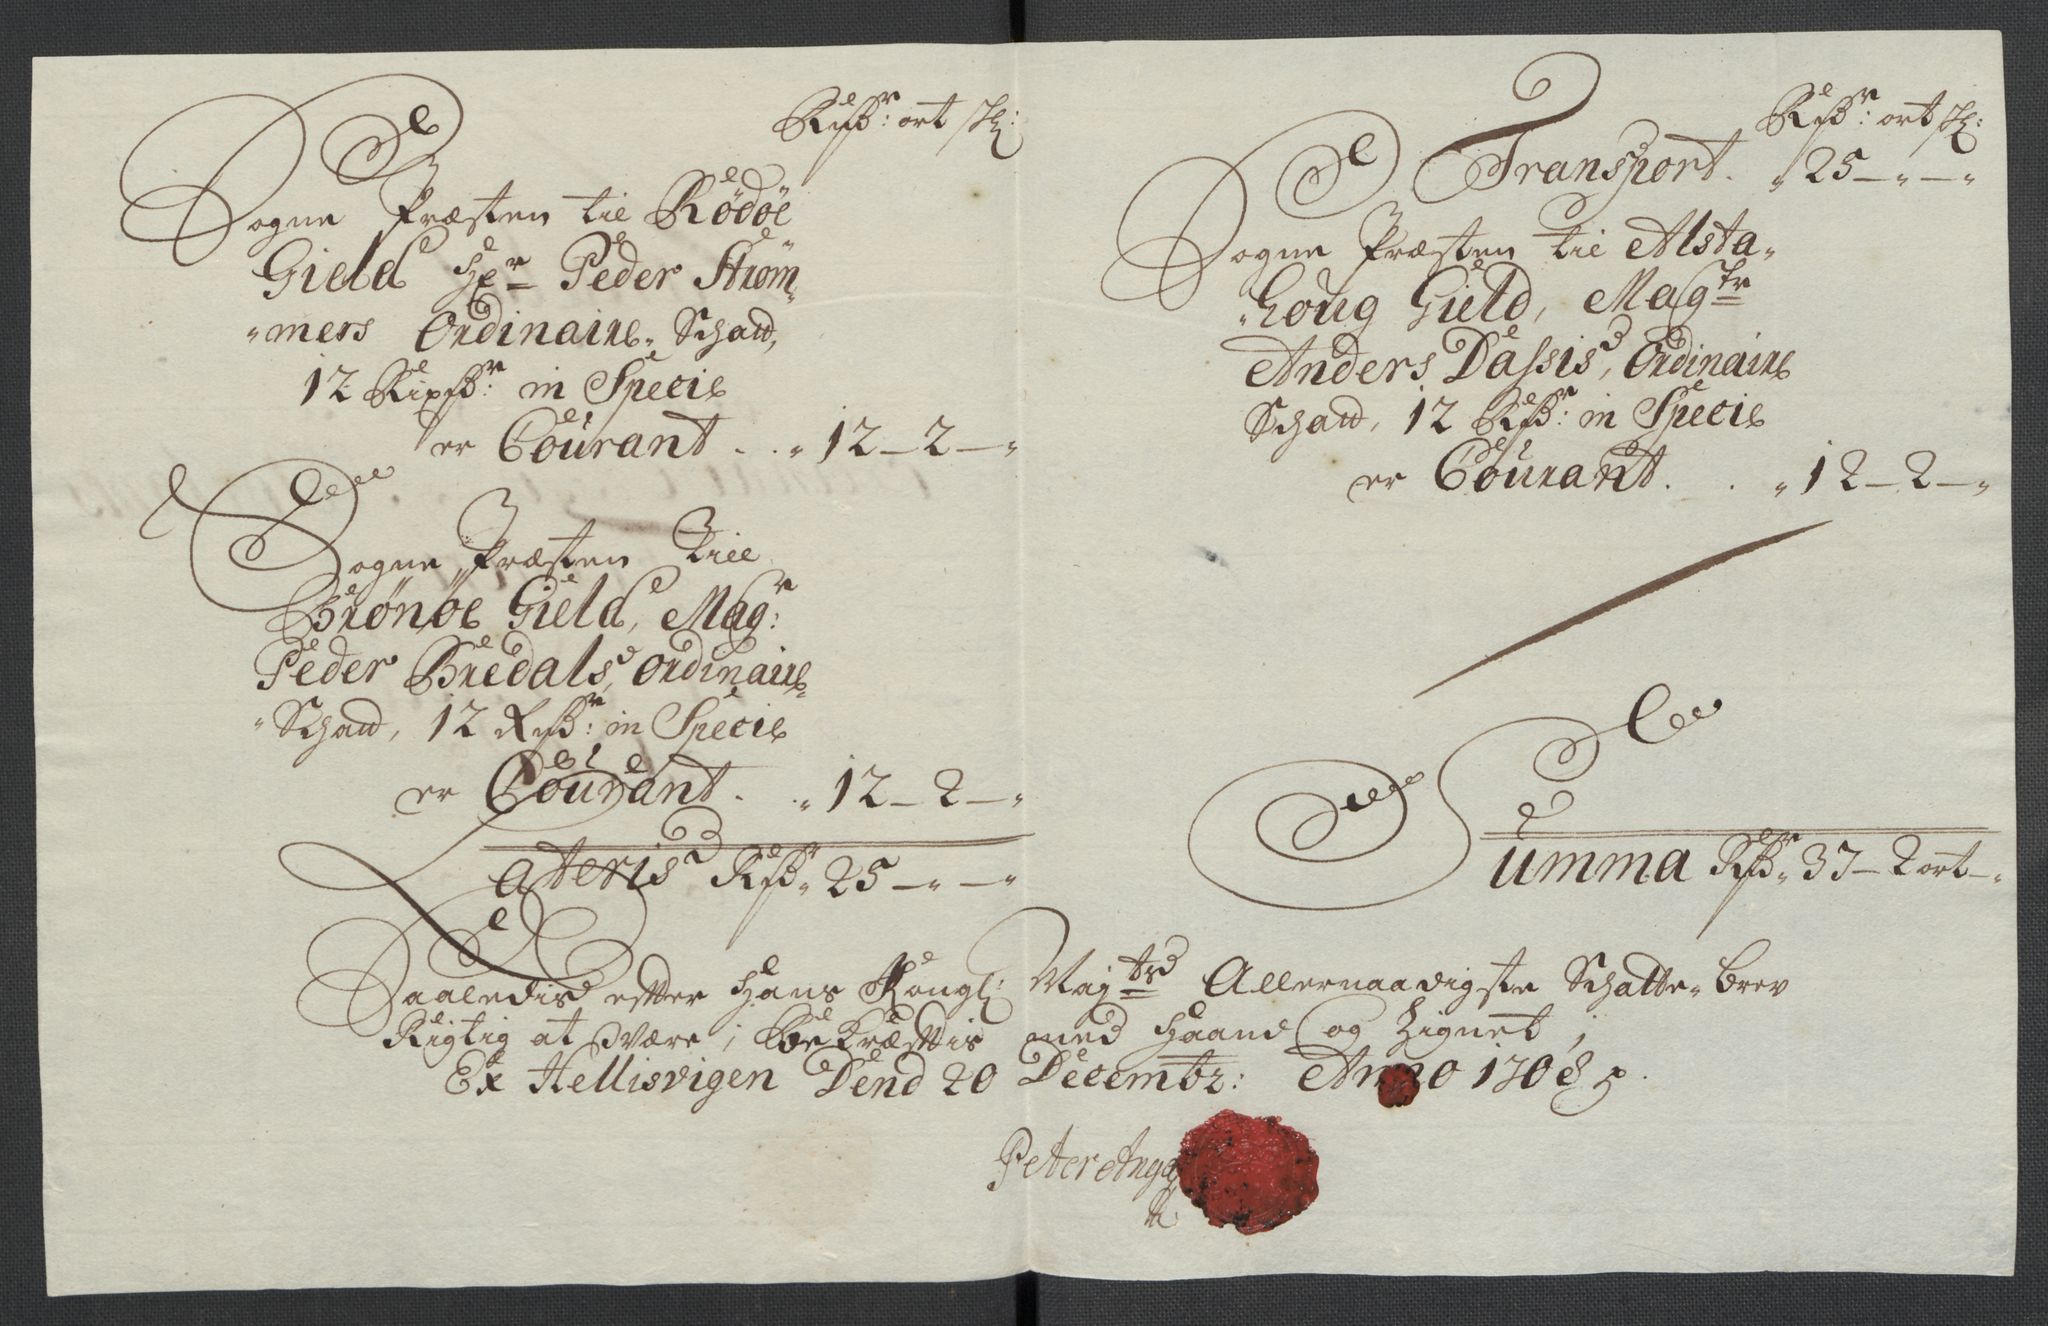 Rixdr: ort sk:
Sogne Præsten til Rödöe
Gield Hr Peder Ström„
„mers Ordinaire Schatt,
12 Rixdr: in Specie
er Courant . . „ 12 – 2 – „
Sogne Præsten till
Brönöe Gield, Magr:
Peder Bredals, Ordinaire
Schatt, 12 Rdr: in Specie
er Courant . . „ 12 – 2 – „
Lateris Rdr „ 25 – „ – „
Rdr: ort sk:
Transport . „ 25 – „ – „
Sogne Præsten til Alsta„
„houg Gield, Magtr
Anders Dassis, Ordinaire
Schatt, 12 Rdr: in Specie
er Courant . . „ 12 – 2 – „
Summa Rdr „ 37 – 2 ort – „
Saaledis efter Hans Kongl: Majts Allernaadigste Schatte-brev
Rigtig at være, bekræftis med Haand og Zignet,
Ex Hellisvigen Dend 20 Decembr: Anno 1708
Peter Ange